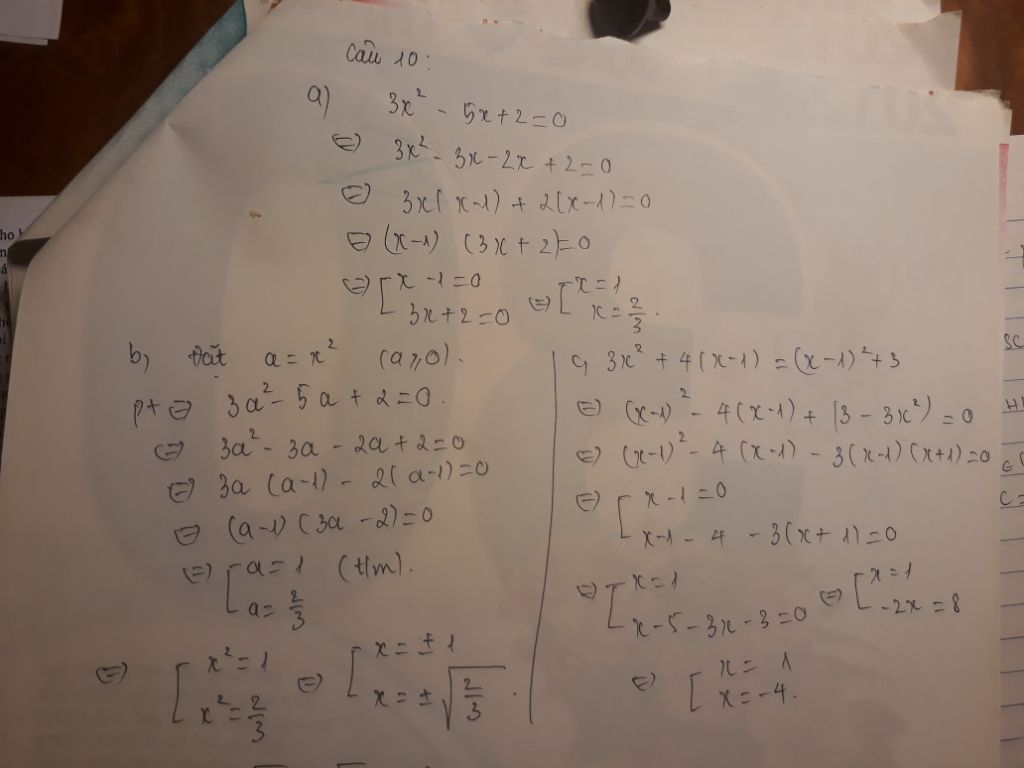 Câu 10:
a) 3x² - 5x + 2 = 0
⇔ 3x² - 3x - 2x + 2 = 0
⇔ 3x(x-1) + 2(x-1) = 0
⇔ (x-1) (3x + 2) = 0
⇔ [ x - 1 = 0 ⇔ [ x = 1
3x + 2 = 0 x = 2/3.
b, Đặt a = x² (a ⩾ 0).
pt ⇔ 3a² - 5a + 2 = 0.
⇔ 3a² - 3a - 2a + 2 = 0
⇔ 3a (a-1) - 2(a-1) = 0
⇔ (a-1) (3a - 2) = 0
⇔ [ a = 1 (t/m).
a = 2/3
⇔ [ x² = 1 ⇔ [ x = ± 1
x² = 2/3 x = ± √(2/3).
c, 3x² + 4(x-1) = (x-1)² + 3
⇔ (x-1)² - 4(x-1) + (3 - 3x²) = 0
⇔ (x-1)² - 4(x-1) - 3(x-1)(x+1) = 0
⇔ [ x - 1 = 0
x - 1 - 4 - 3(x + 1) = 0
⇔ [ x = 1 ⇔ [ x = 1
x - 5 - 3x - 3 = 0 -2x = 8
⇔ [ x = 1
x = -4.